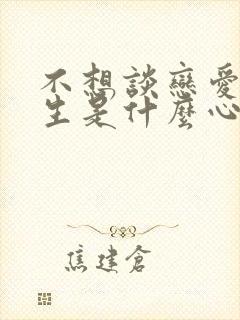 不想談戀愛
生是什麼心
焦建倉